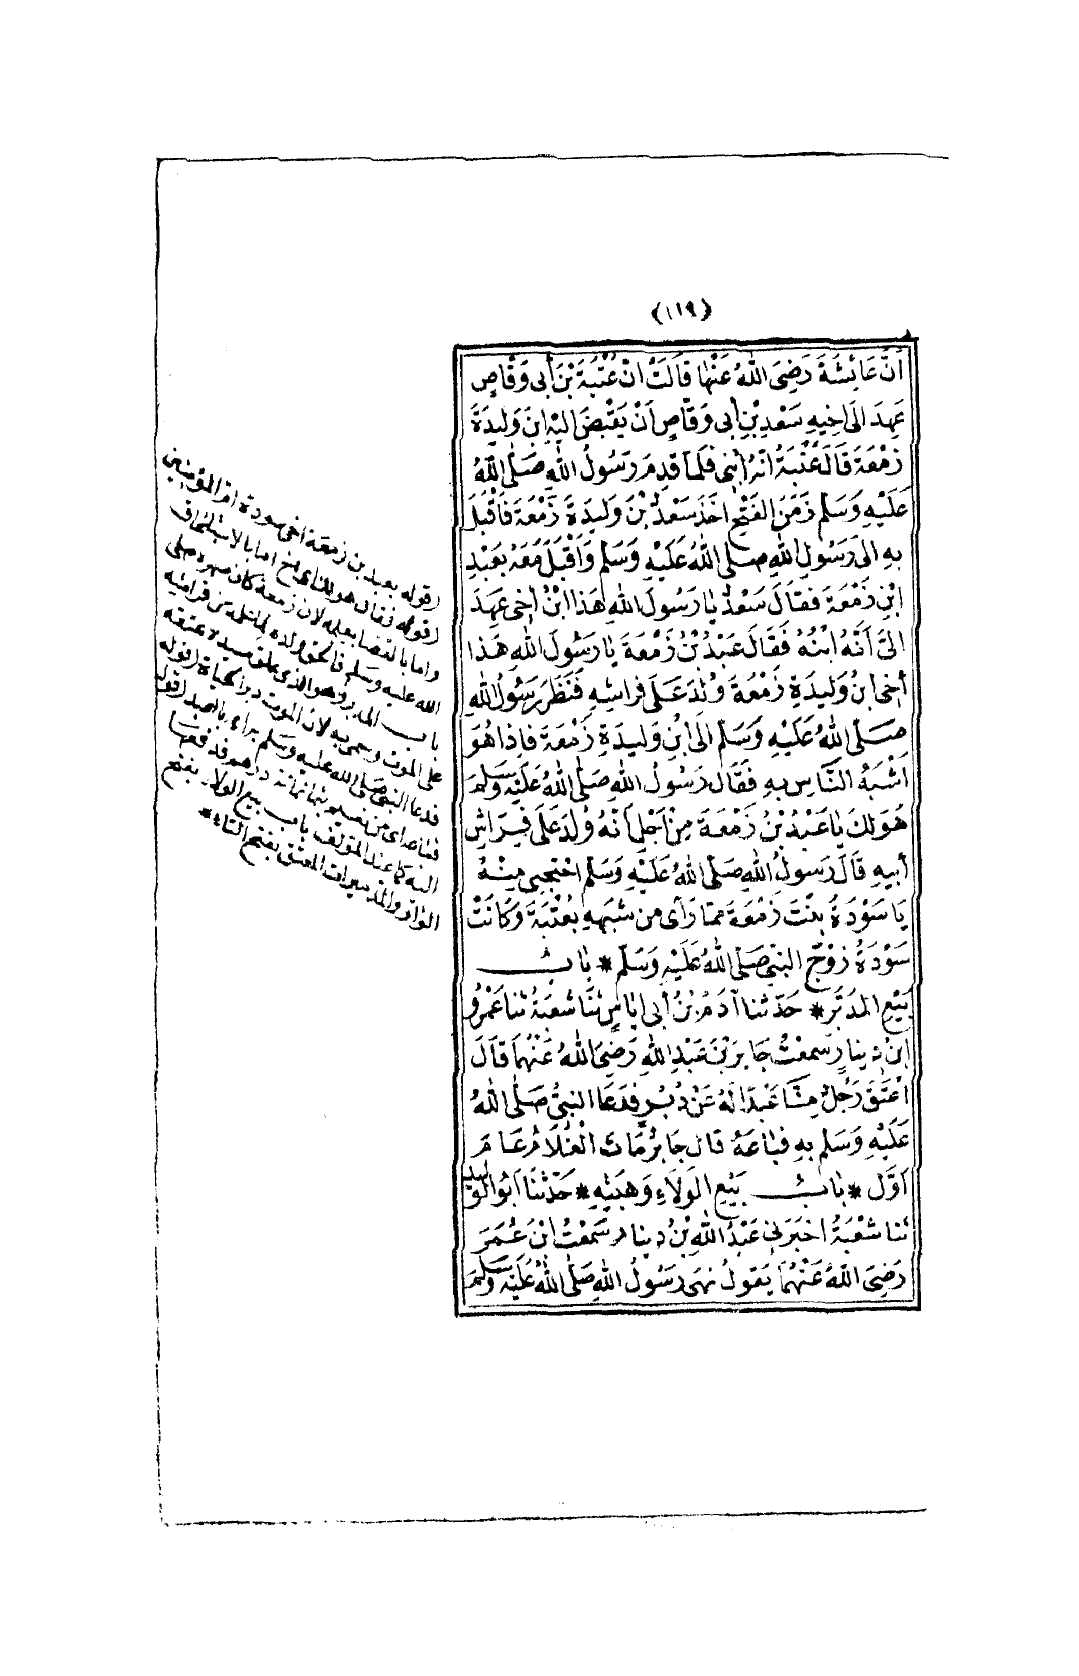 (١١٩)
اَنَّ عَائِشَةَ رَضِىَ اللهُ عَنْهَا قَالَتْ اِنَّ عُتْبَةَ بْنَ أَبِى وَقَّاصٍ
عَهِدَ اِلَى اَخِيهِ سَعْدِ بْنِ اَبِى وَقَّاصٍ اَنْ يَقْبِضَ اِلَيْهِ ابْنَ وَلِيدَةَ
زَمْعَةَ قَالَ عُتْبَةُ اَنَّهُ ابْنِى فَلَمَّا قَدِمَ رَسُولُ اللهِ صَلَّى اللهُ
عَلَيْهِ وَسَلَّمَ زَمَنَ الْفَتْحِ اَخَذَ سَعْدٌ بْنَ وَلِيدَةَ زَمْعَةَ فَاَقْبَلَ
بِهِ اِلَى رَسُولِ اللهِ صَلَّى اللهُ عَلَيْهِ وَسَلَّمَ وَاَقْبَلَ مَعَهُ بِعَبْدِ
ابْنِ زَمْعَةَ فَقَالَ سَعْدٌ يَا رَسُولَ اللهِ هَذَا ابْنُ اَخِى عَهِدَ
اِلَىَّ اَنَّهُ ابْنُهُ فَقَالَ عَبْدُ بْنُ زَمْعَةَ يَا رَسُولَ اللهِ هَذَا
أَخِى ابْنُ وَلِيدَةِ زَمْعَةَ وُلِدَ عَلَى فِرَاشِهِ فَنَظَرَ رَسُولُ اللهِ
صَلَّى اللهُ عَلَيْهِ وَسَلَّمَ اِلَى ابْنِ وَلِيدَةِ زَمْعَةَ فَاِذَا هُوَ
اَشْبَهُ النَّاسِ بِهِ فَقَالَ رَسُولُ اللهِ صَلَّى اللهُ عَلَيْهِ وَسَلَّمَ
هُوَ لَكَ يَا عَبْدُ بْنُ زَمْعَةَ مِنْ اَجْلِ اَنَّهُ وُلِدَ عَلَى فِرَاشِ
أَبِيهِ قَالَ رَسُولُ اللهِ صَلَّى اللهُ عَلَيْهِ وَسَلَّمَ احْتَجِبِى مِنْهُ
يَا سَوْدَةُ بِنْتَ زَمْعَةَ مِمَّا رَأَى مِنْ شَبَهِهِ بِعُتْبَةَ وَكَانَتْ
سَوْدَةُ زَوْجَ النَّبِىِّ صَلَّى اللهُ عَلَيْهِ وَسَلَّمَ * بَابُ
بَيْعِ الْمُدَبَّرِ * حَدَّثَنَا آدَمُ بْنُ أَبِى اِيَاسٍ ثَنَا شُعْبَةُ ثَنَا عَمْرُو
ابْنُ دِينَارٍ سَمِعْتُ جَابِرَ بْنَ عَبْدِ اللهِ رَضِىَ اللهُ عَنْهُمَا قَالَ
اَعْتَقَ رَجُلٌ مِنَّا عَبْدًا لَهُ عَنْ دُبُرٍ فَدَعَا النَّبِىُّ صَلَّى اللهُ
عَلَيْهِ وَسَلَّمَ بِهِ فَبَاعَهُ قَالَ جَابِرٌ مَاتَ الْغُلَامُ عَامَ
اَوَّلَ * بَابُ بَيْعِ الْوَلَاءِ وَهِبَتِهِ * حَدَّثَنَا اَبُو الْوَلِيدِ
ثَنَا شُعْبَةُ اَخْبَرَنِى عَبْدُ اللهِ بْنُ دِينَارٍ سَمِعْتُ ابْنَ عُمَرَ
رَضِىَ اللهُ عَنْهُمَا يَقُولُ نَهَى رَسُولُ اللهِ صَلَّى اللهُ عَلَيْهِ وَسَلَّمَ
(قوله بعبد بن زمعة اخى سودة ام المؤمنين
(قوله فقال هو لك اى اخ اما بالاستلحاق
واما بالقضا بعلمه لان زمعة كان صهره صلى
الله عليه وسلم فالحق ولده لما علمه من فراشه
باب المدبر وهو الذى علق سيده عتقه
على الموت وسمى به لان الموت دبر الحياة (قوله
فدعا النبى صلى الله عليه وسلم به اى بالعبد (قوله
فباعه اى من نعيم بثمانمائة درهم فدفعها
اليه كما عند المؤلف باب بيع الولاء بفتح
الواو والمد ميراث المعتق بفتح التاء *